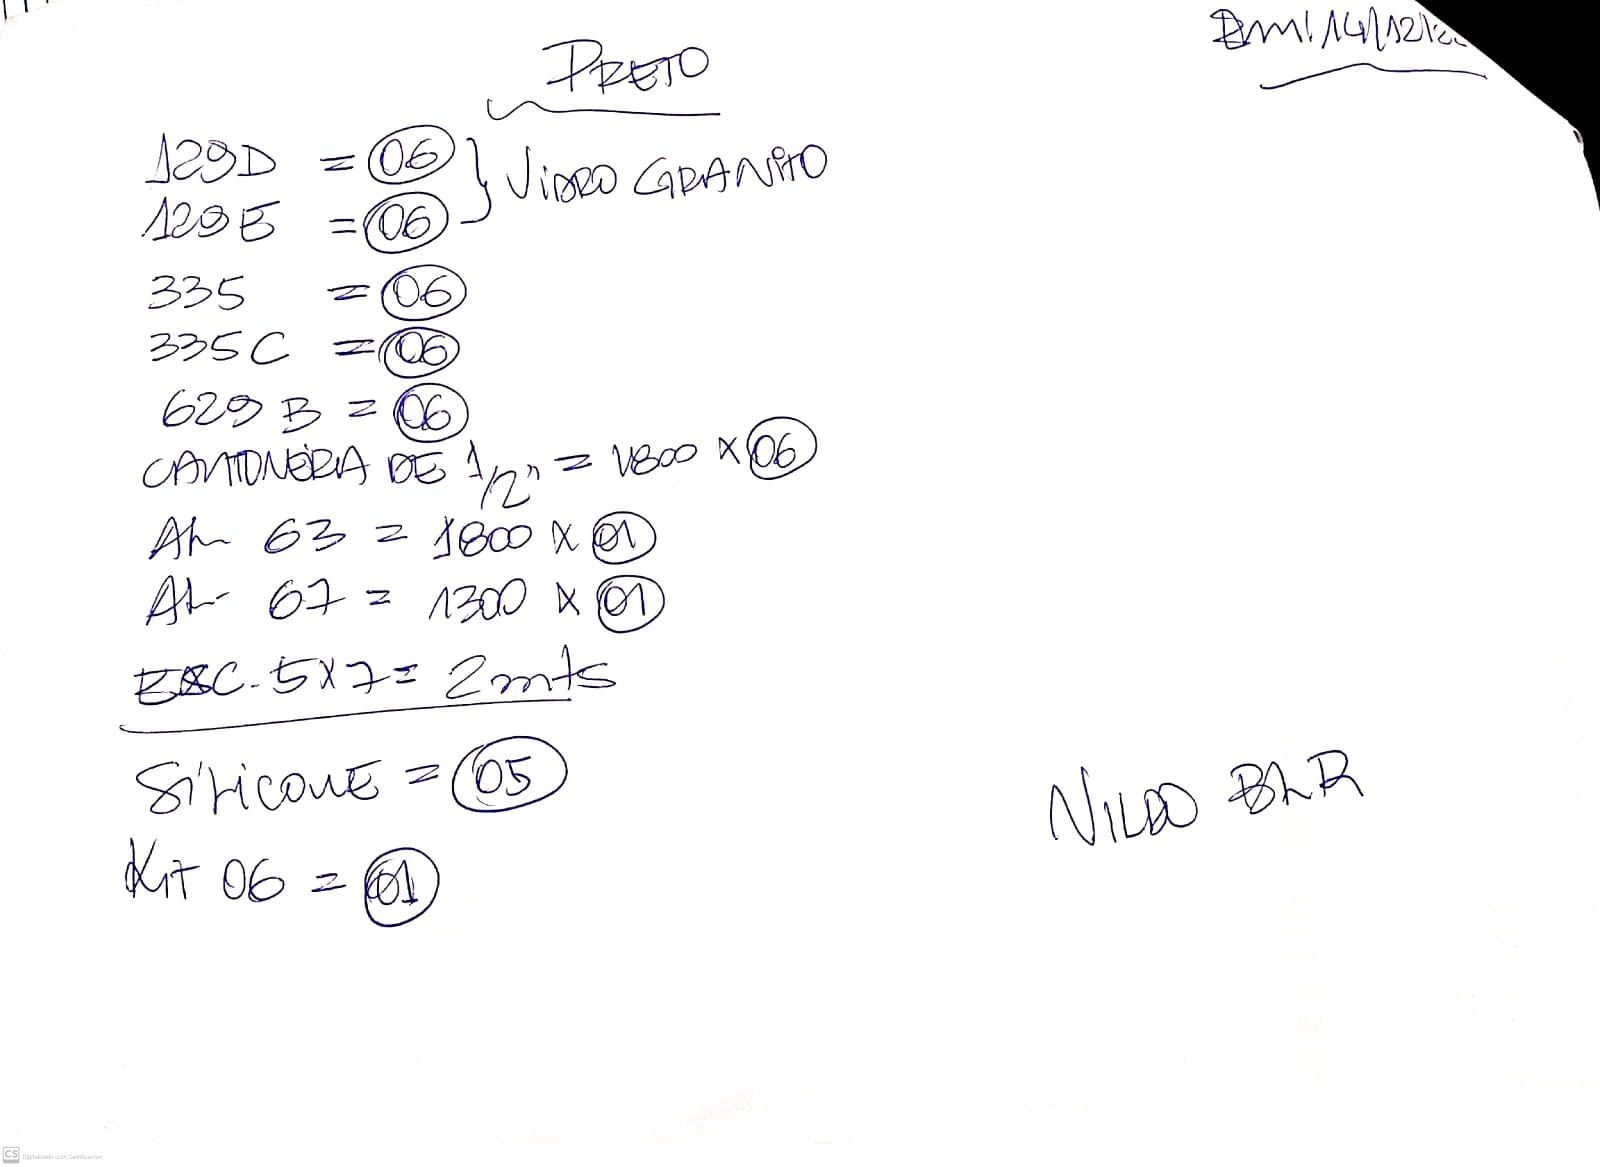 Em! 14/12/2
PRETO
129D = 06
129E = 06 } VIDRO GRANITO
335 = 06
335C = 06
629 B = 06
CANTONEIRA DE 1/2" = 1800 X 06
AL 63 = 1800 X 01
AL 67 = 1300 X 01
ESC. 5X7 = 2mts
SILICONE = 05
NILDO BLR
KIT 06 = 01
CS Digitalizado com CamScanner